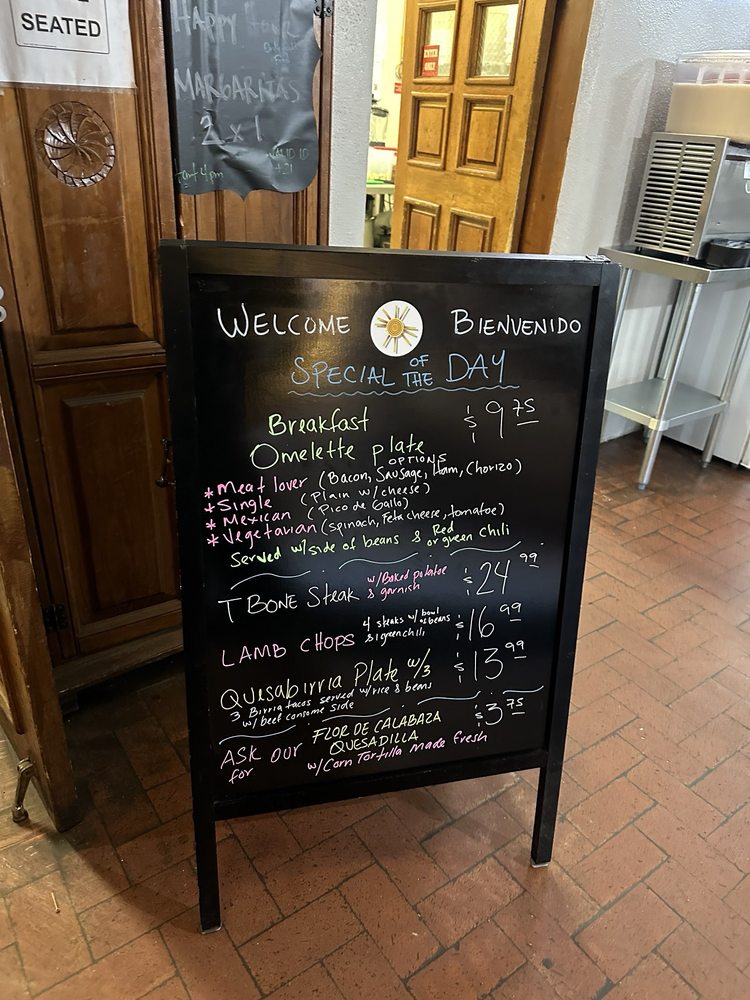 SEATED
HAPPY Hour
MARGARITAS
2 x 1
4pm
VALID ID
+21
WELCOME BIENVENIDO
SPECIAL OF THE DAY
Breakfast $9.75
Omelette plate
OPTIONS
* Meat lover (Bacon, Sausage, Ham, Chorizo)
* Single (Plain w/cheese)
* Mexican (Pico de Gallo)
* Vegetarian (spinach, Feta cheese, tomatoe)
Served w/side of beans & Red or green chili
T BONE Steak w/Baked potatoe & garnish $24.99
LAMB CHOPS 4 steaks w/ bowl of beans & green chili $16.99
Quesabirria Plate w/3 $13.99
3 Birria tacos served w/rice & beans
w/ beef consome side
ASK our for FLOR DE CALABAZA QUESADILLA $3.75
w/Corn Tortilla made fresh